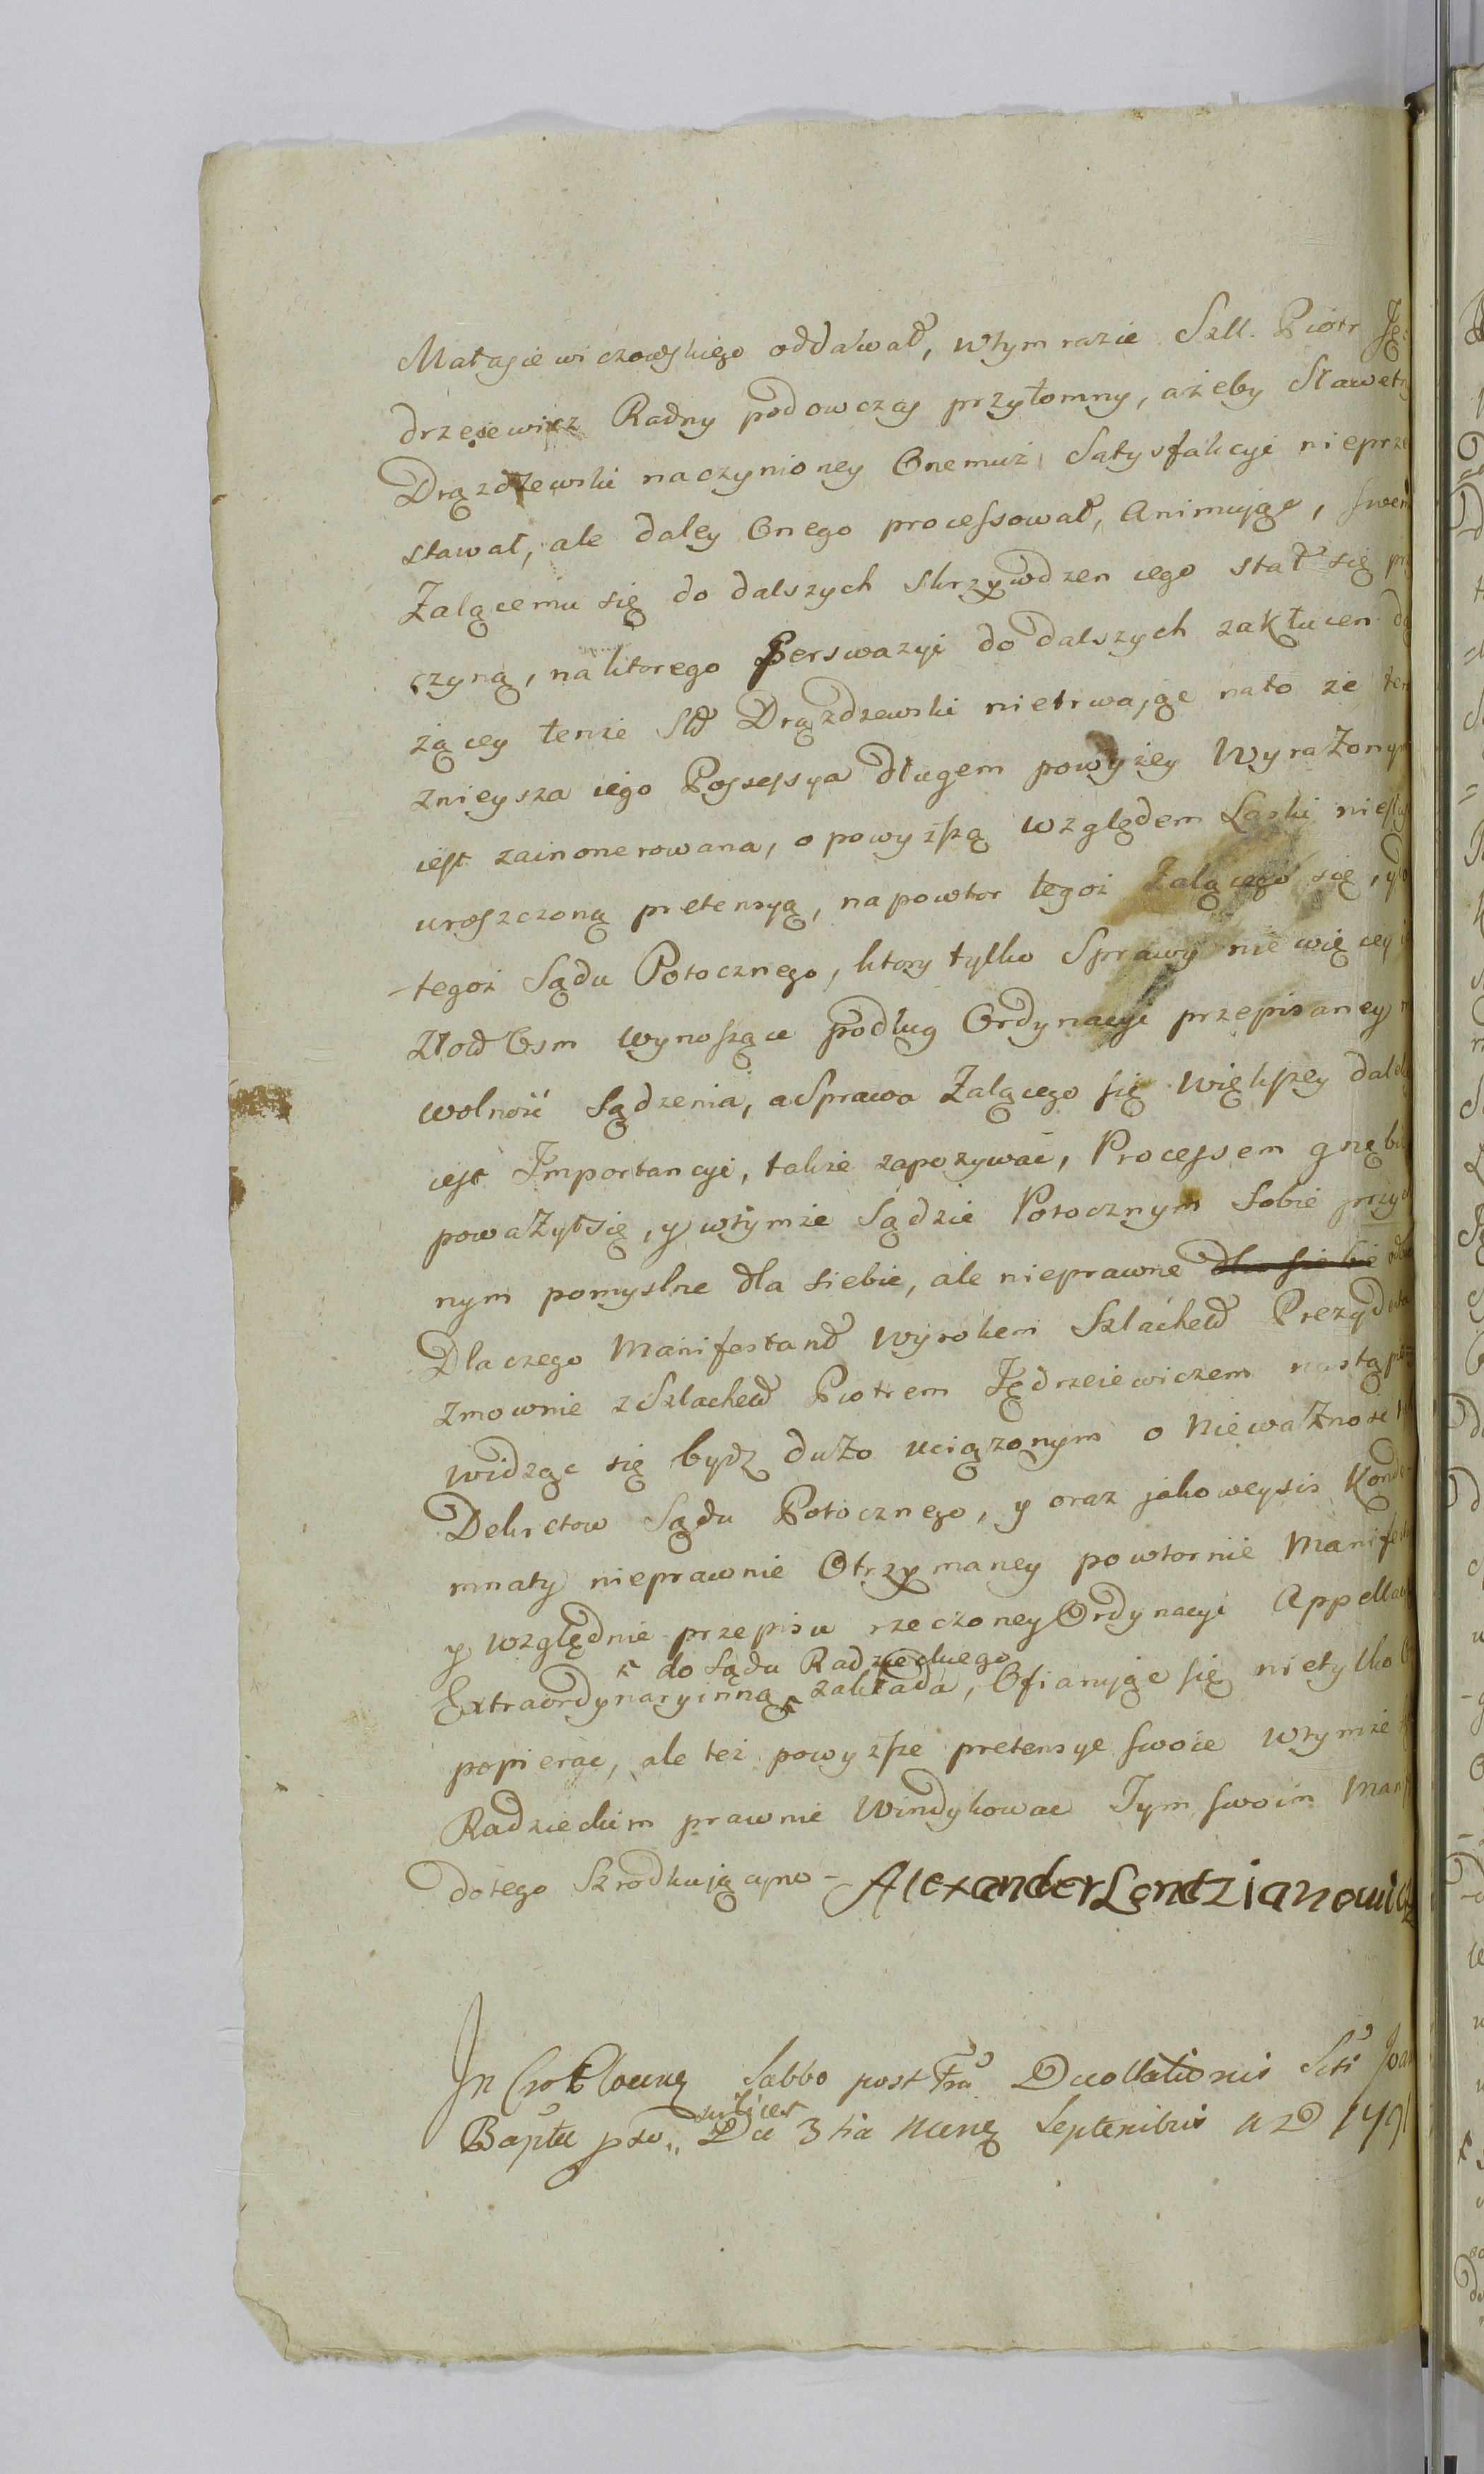 Matasiewiczowskiego oddawał, wtym razie Szll. Piotr Ję-
drzeiewicz Radny podowczas przytomny, ażeby Sławetny
Drązdzewski naczynioney Onemuż Satysfakcyi nieprze
stawał, ale daley Onego processował, animując,
Żalącemu się do dalszych skrzywdzen iego stał się przy
czyną, naktorego Perswazyi do dalszych zakłucen dą
żącey tenże Sł Drązdzewski nietrwając nato że ten
znieysza iego Possessya długem powyżey Wyrażonym
iest zainonerowana, o powyższą względem Laski
uroszczoną pretensyą, napowtor tegoż Żalącego się, y do
tegoż Sądu Potocznego, ktory tylko Sprawy nie więcey
Złod Osm wynoszące podług Ordynacyi przepisaney
wolność sądzenia, a Sprawa Żalącego się większey daleko
iest Importancyi, także zapozywać, Processem gnębić
poważył się, y wtymże Sądzie Potocznym Sobie przy
nym pomyslne dla siebie, ale nieprawne dla siebie
Dlaczego Manifestand wyrokem Szlached Prezydenta
zmownie z Szlached Piotrem Jędrzeiewiczem nastąpio
widząc się bydz dużo uciązonym o Nieważnosc
Dekretow Sądu Potocznego, y oraz jakoweysis Konde-
mnaty nieprawnie Otrzymaney powtornie Manifest
y względnie przepisu rzeczoney Ordynacyi Appellac
do Sądu Radzieckiego
Extraordynaryinną zakłada, Ofiarując się nietylko
popierac, ale też powyższe pretensye swoie wtymże
Radzieckim prawnie Windykowac Tym swoim Manif
dotego Szrodkującym - Alexander Lendzianowicz
In Crotloung Sabbo post Fra Decollationis Scti Joa
scilicet
Bapta pxo. Die 3tia Mens Septembris AD 179